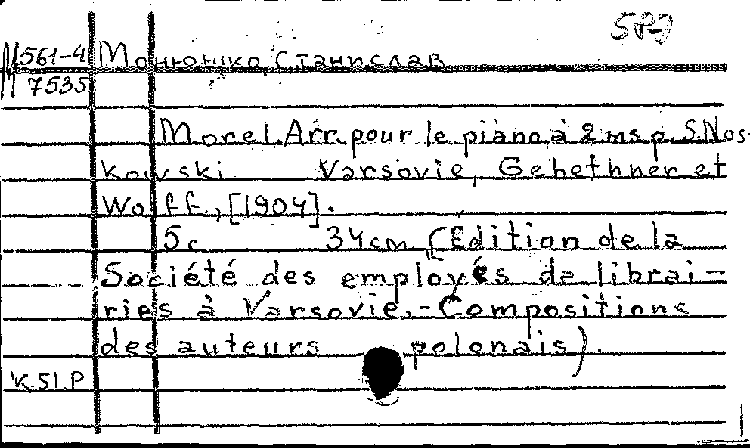 М561-4 Монюшко, Станислав
7535
Morcel. Arr. pour le piano à 2 ms p. S. Nos-
kowski Varsovie, Gebethner et
Wolff, [1904].
5 c 34 cm (Edition de la
Société des employés de librai-
ries à Varsovie. - Compositions
des auteurs polonais).
К 51.P